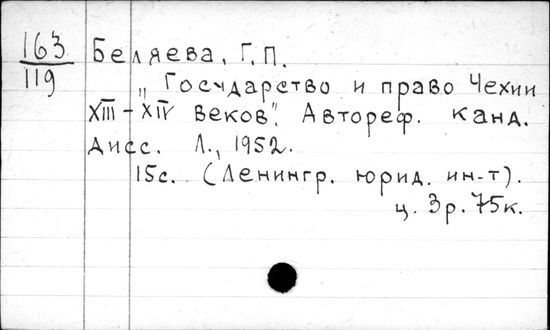 163
119
Беляева, Г.П.
„Государство и право Чехии
XIII – XIV веков". Автореф. канд.
дисс. Л., 1952.
15с. (Ленингр. юрид. ин-т).
ц. 3р. 75к.